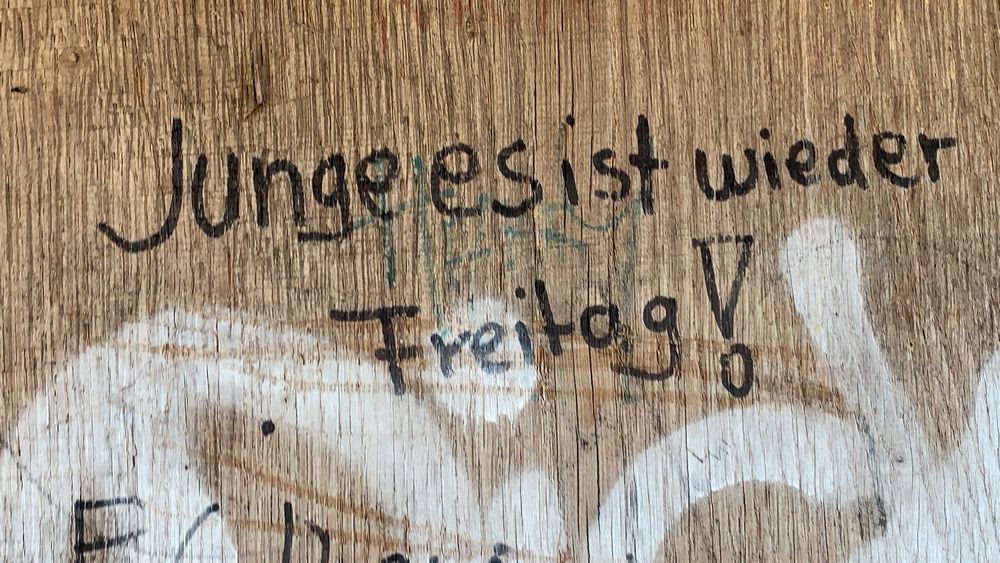 Junge es ist wieder
Freitag!